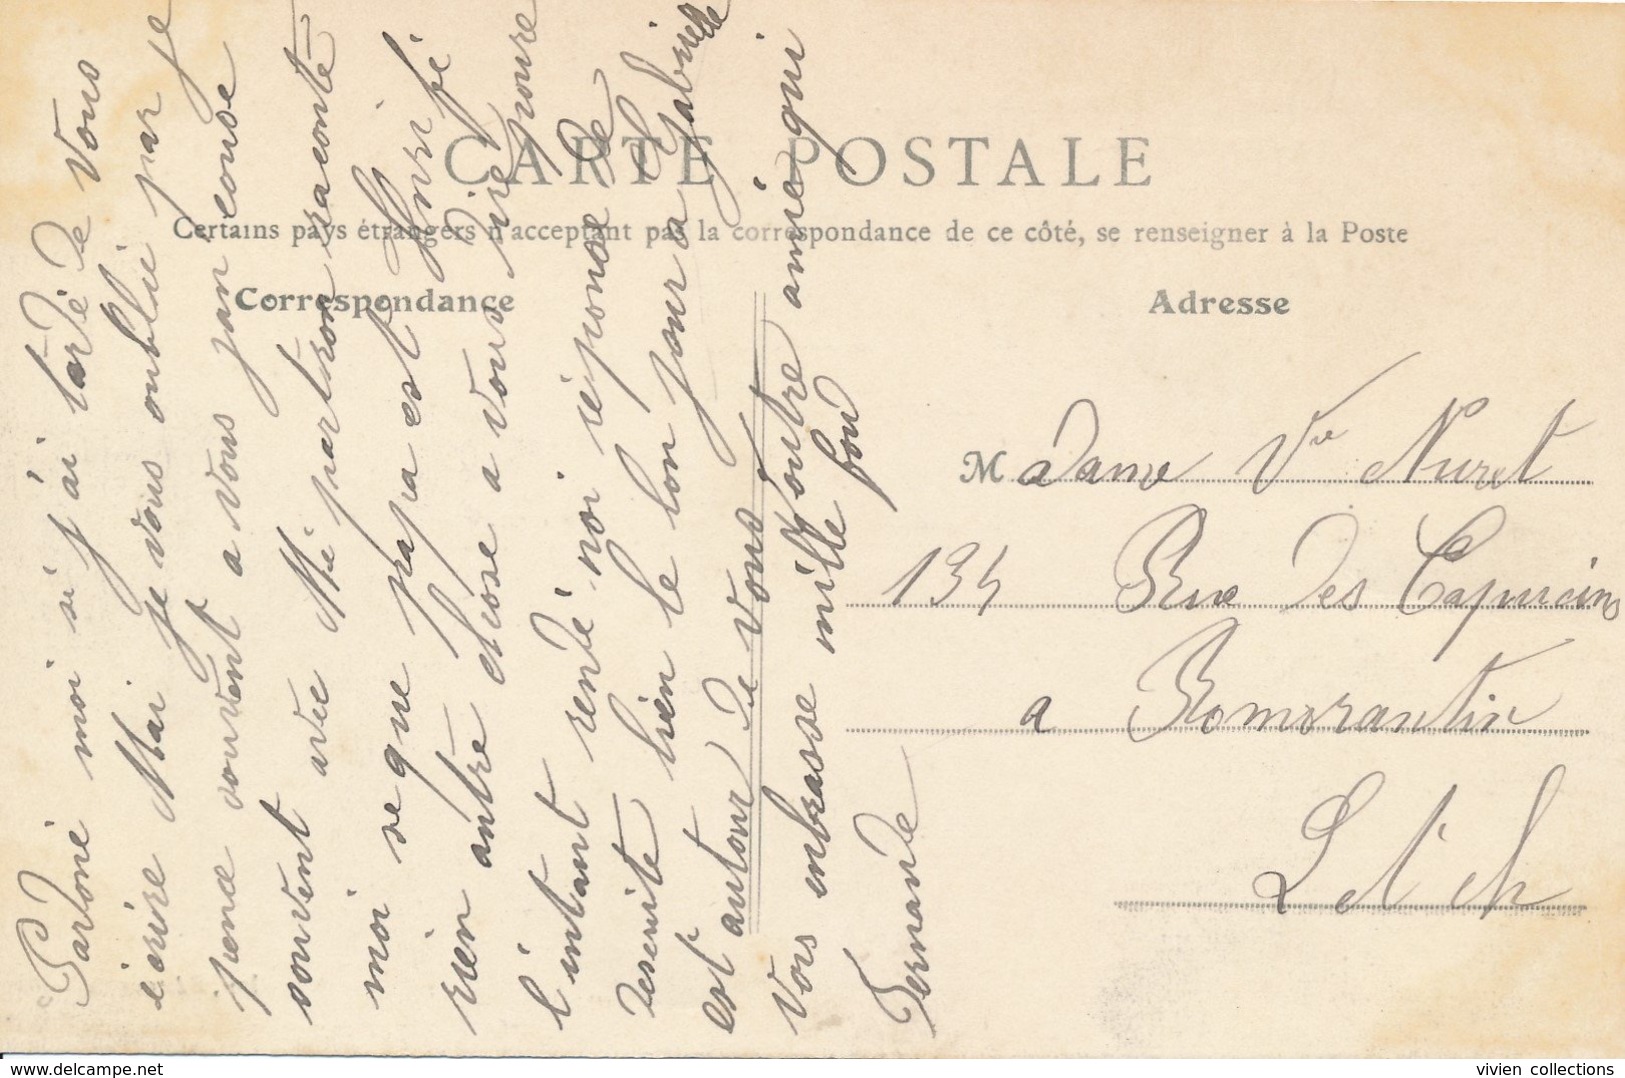 CARTE POSTALE
Certains pays étrangers n'acceptent pas la correspondance de ce côté, se renseigner à la Poste
Correspondance
Adresse
Pardoné moi si j'ai tardé de vous
écrire Mai je vous oublié pas je
pense souvent a vous jan couse
souvent avec Mé partron raconté
moi se que papa est
rien autre chose a vous dire pour
l'intant rendé noi réponse de
desuite bien le bon jour a Gabrielle
est autour de vous
Vous enbrasse mille fou
Votre amie qui
Fernande
Madame Vve Nuret
134 Rue des Capucins
a Romorantin
L et ch
vivien collections